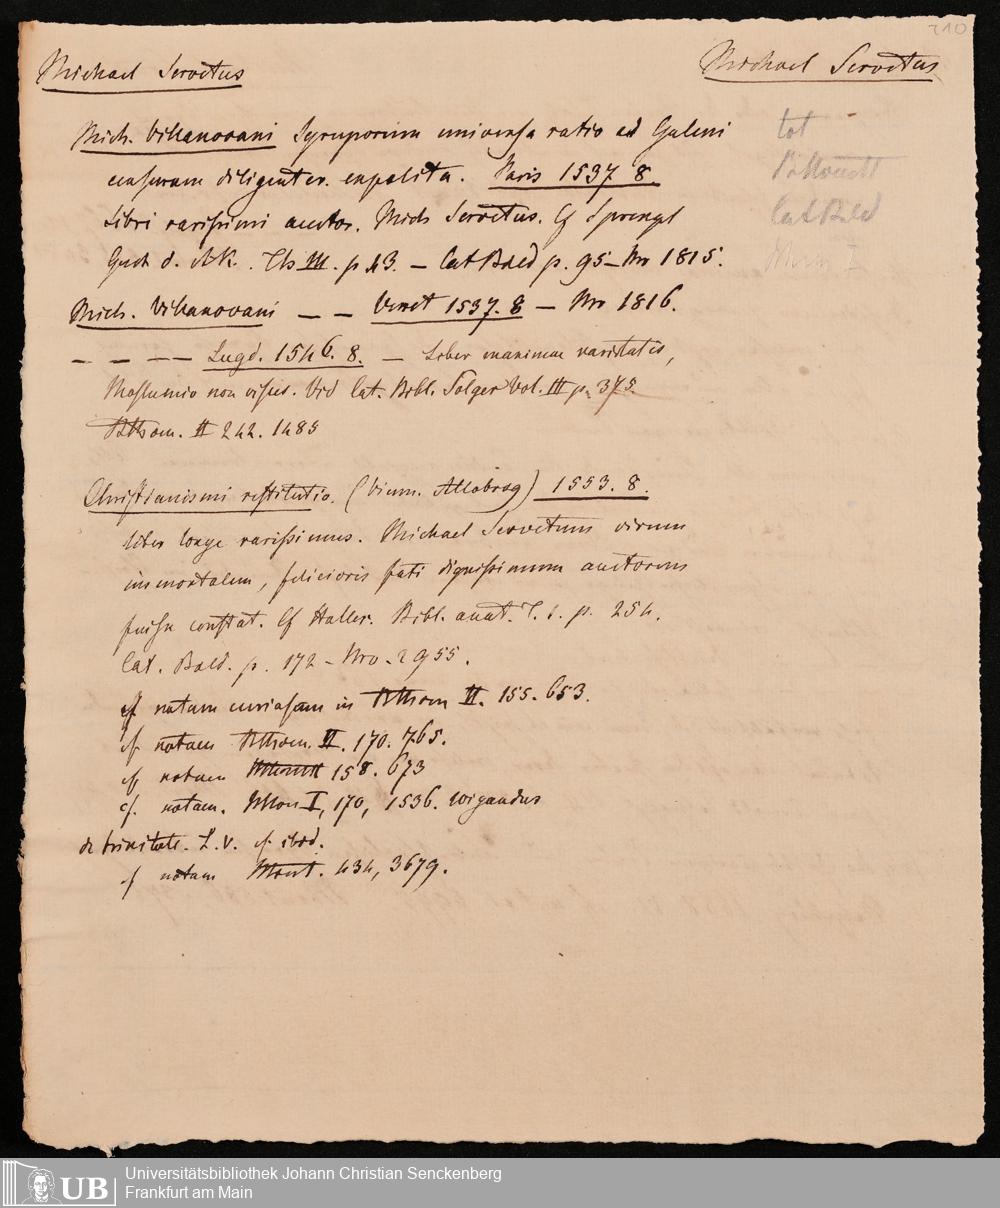 210
Michael Servetus
Michael Servetus
Mich. Villanovani Syruporum universa ratio ad Galeni
censuram diligenter expolita. Paris 1537 8.
Libri rarissimi auctor. Mich Servetus. Cf Sprengl
Gesch d. AK. Th III. p. 43. – Cat Bald p. 95 – Nro 1815.
Mich. Villanovani – – Venet 1537. 8 – Nro 1816.
– – – – Lugd. 1546. 8. – Liber maximae raritatis,
non visus. Vid Cat. Bibl. Solger Vol. III p. 375.
II 242. 1485
tot
Cat Bald
I
Christianismi restitutio. (Vienn. Allobrog) 1553. 8.
liber longe rarissimus. Michael Servetum virum
immortalem, felicioris fati dignissimum auctorem
fuisse constat. Cf Haller. Bibl. anat. T. 1. p. 254.
Cat. Bald. p. 172 – Nro. 2955.
cf notam curiosam in II. 155. 653.
cf. notam II. 170. 765.
cf notam 158. 673
cf. notam. I, 170, 1536. Wigandus
de trinitate. L. V. cf ibid.
cf notam 434, 3679.
UB
Universitätsbibliothek Johann Christian Senckenberg
Frankfurt am Main